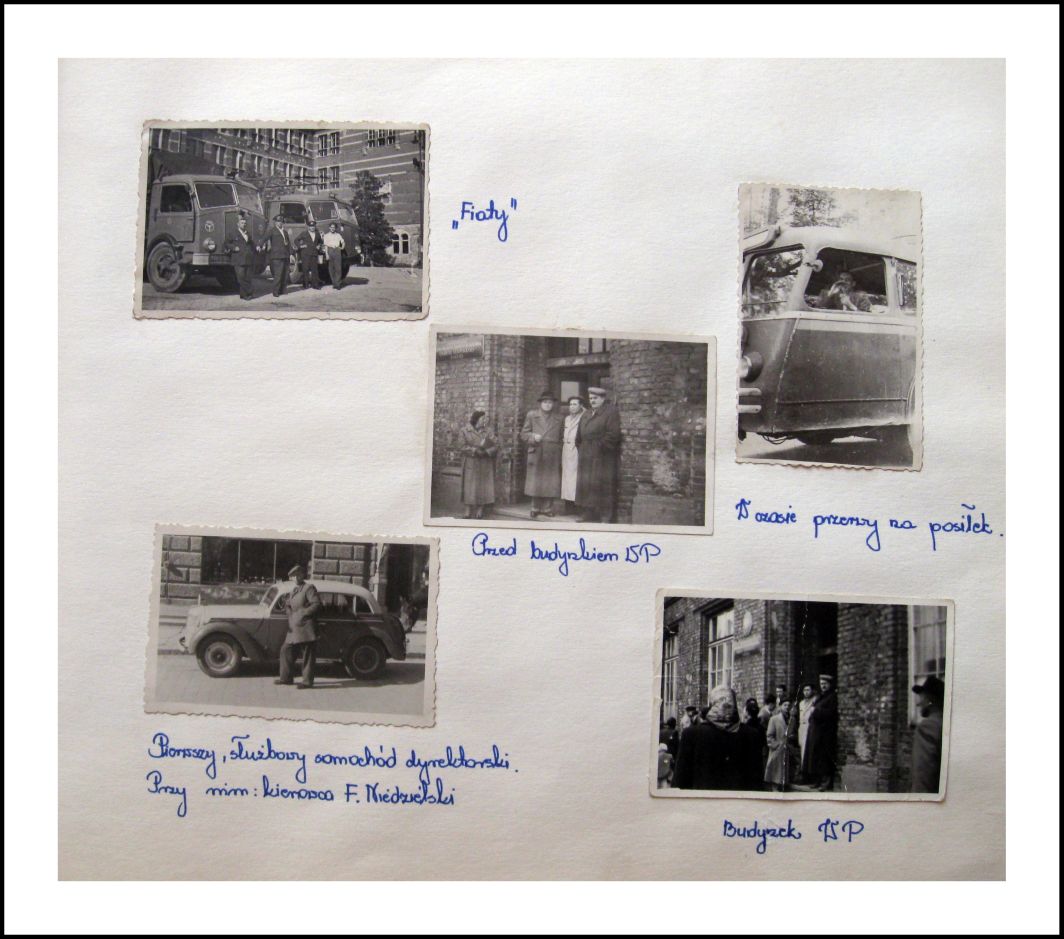 „Fiaty"
W czasie przerwy na posiłek.
Przed budynkiem WP
Pierwszy, służbowy samochód dyrektorski.
Przy nim: kierowca F. Niedzielski
Budynek WP